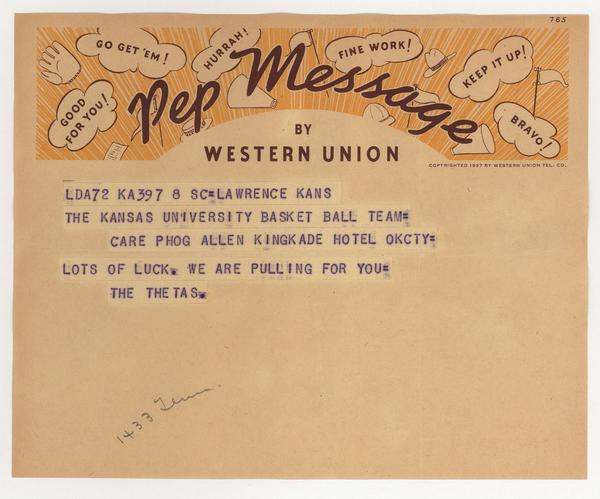 765
GO GET 'EM!
HURRAH!
FINE WORK!
KEEP IT UP!
GOOD
FOR YOU!
BRAVO!
Pep Message
BY
WESTERN UNION
COPYRIGHTED 1937 BY WESTERN UNION TEL. CO.
LDA72 KA397 8 SC=LAWRENCE KANS
THE KANSAS UNIVERSITY BASKET BALL TEAM=
CARE PHOG ALLEN KINGKADE HOTEL OKCTY=
LOTS OF LUCK. WE ARE PULLING FOR YOU=
THE THETAS.
1433 Tenn.